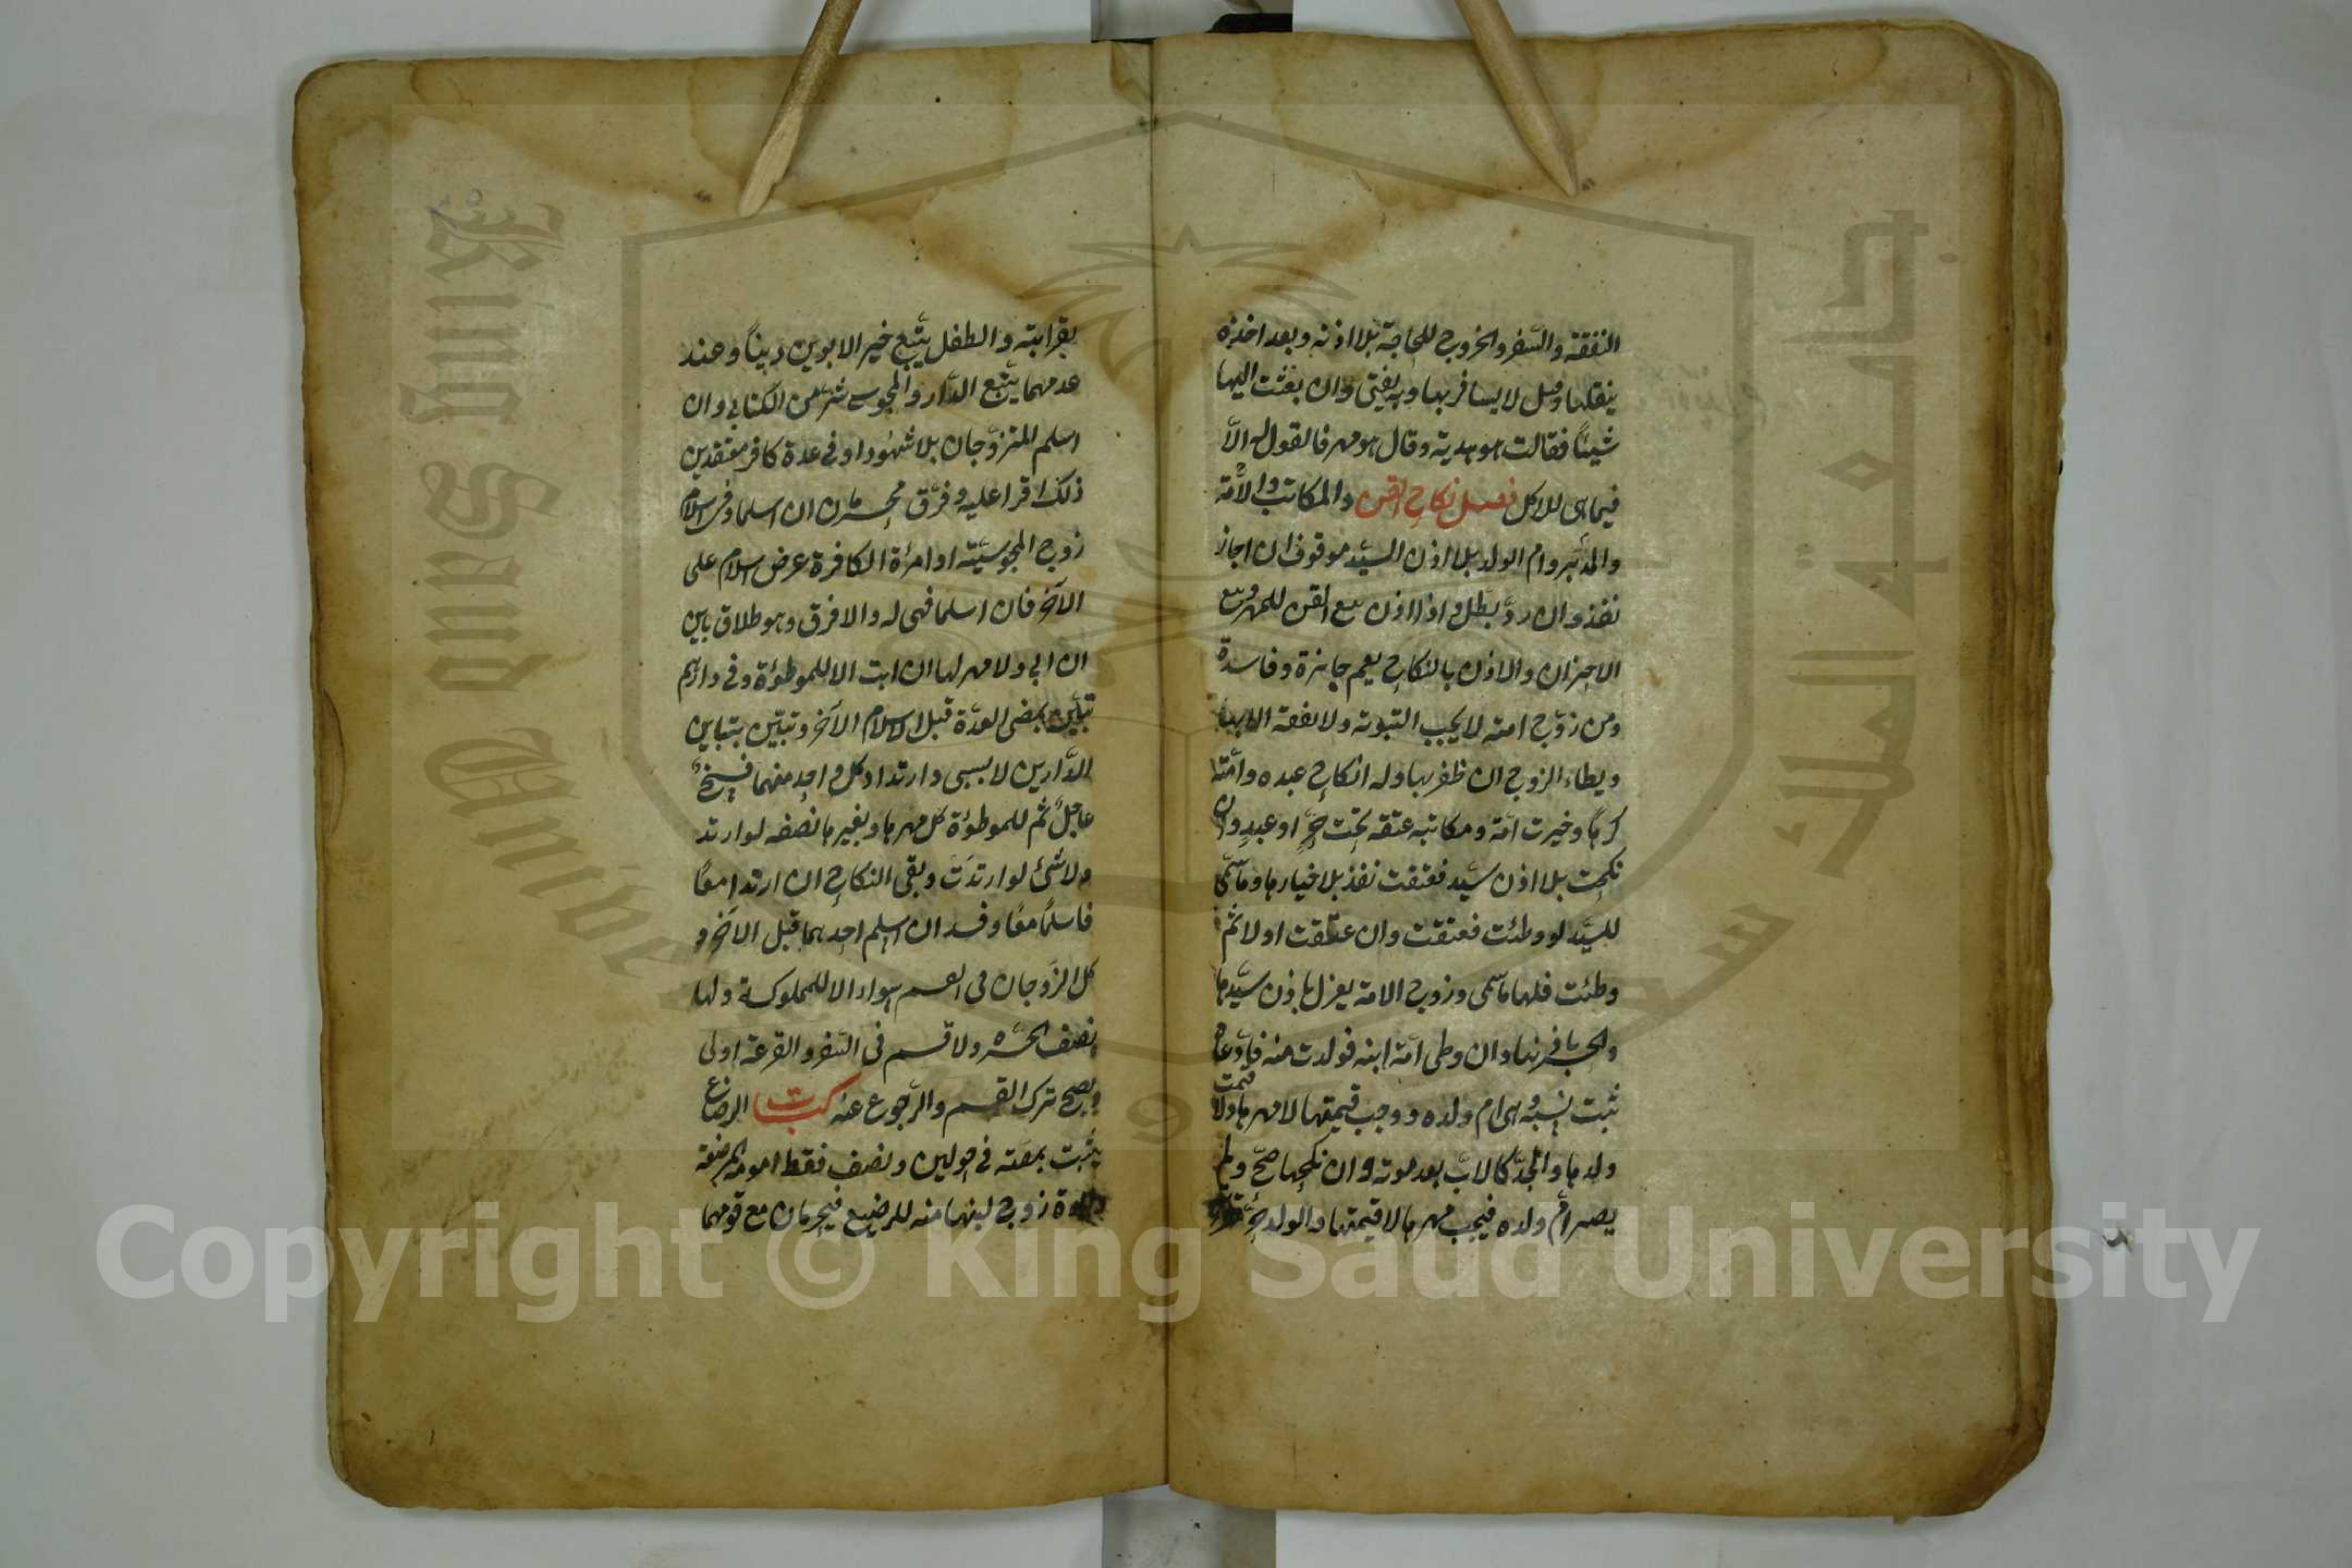 النفقة والسفر والخروج للحاجة بلا اذنه وبعد اخذه
ينقلها وقيل لا يسافر بها وبه يفتى وان بعثت اليها
شيئاً فقالت هو هدية وقال هو مهر فالقول له الاّ
فيما هى للاكل فصل نكاح القن والمكاتب والامة
والمدبر وام الولد بلا اذن السيّد موقوف ان اجاز
نفذ وان ردّ بطل واذا اذن بيع القن للمهر وسع
الاخران والاذن بالنكاح يعم جايزة وفاسدة
ومن زوّج امته لا يجب التبوية ولا نفقة الا بها
ويطاء الزوج ان ظفر بها وله انكاح عبده وامته
كرهاً وخيرت امة ومكاتبة عتقه تحت حرٍّ او عبدٍ وان
نكحت بلا اذن سيّد فعتقت نفذ بلا خيارها وما سمّى
للسيّد لو وطئت فعتقت وان عتقت اولا ثم
وطئت فلها ما سمّى وزوج الامة يعزل باذن سيّدها
والحرة باذنها وان وطى امة ابنه فولدت منه فادّعاه
ثبت نسبه وهى ام ولده ووجب قيمتها لا مهرها ولا قيمت
ولدها والجدّ كالاب بعد موته وان نكحها صحّ ولم
يصر امّ ولده فيجب مهرها لا قيمتها والولد حرّ
بقرابته والطفل يتّبع خير الابوين ديناً وعند
عدمهما يتّبع الدّار والمجوسى شرّ من الكتابى وان
اسلم المتزوّجان بلا شهود او فى عدة كافر معتقدين
ذلك اقرا عليه وفرّق محرمان ان اسلما وفى اسلام
زوج المجوسيّة او امرأة الكافرة عرض اسلام على
الآخر فان اسلما فهى له والا فرق وهو طلاق باين
ان ابى ولا مهر لها ان ابت الا للموطوءة وفى دارهم
تبين بمضى العدّة قبل اسلام الآخر وتبيّن بتباين
الدّارين لا بسبى وارتداد كل واحد منهما فسخٌ
عاجلٌ ثم للموطوءة كل مهرها ولغيرها نصفه لو ارتد
ولا شئ لو ارتدَت وبقى النكاح ان ارتدا معًا
فاسلمًا معًا وفسد ان اسلم احدهما قبل الآخر و
كل الزوجان فى القسم سواء الا للمملوكة ولها
نصف الحرّه ولا قسم فى السّفر والقرعة اولى
ويصح ترك القسم والرّجوع عنه كتاب الرضاع
يثبت بمصّة فى حولين ونصف فقط امومة المرضعة
وابوة زوج لبنها منه للرضيع فيحرمان مع قومهما
Copyright © King Saud University
King Saud University
جامعة الملك سعود